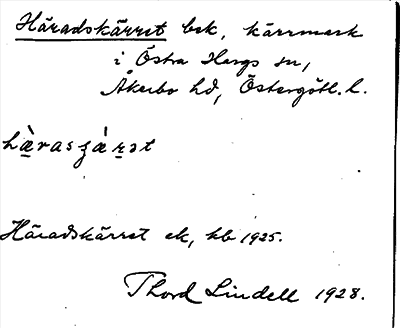 Häradskärret bsk, kärrmark
i Östra Hargs sn,
Åkerbo hd, Östergötl. l.
hä̀rasʒä́rət
Häradskärret ek, hb 1925.
Thord Lindell 1928.